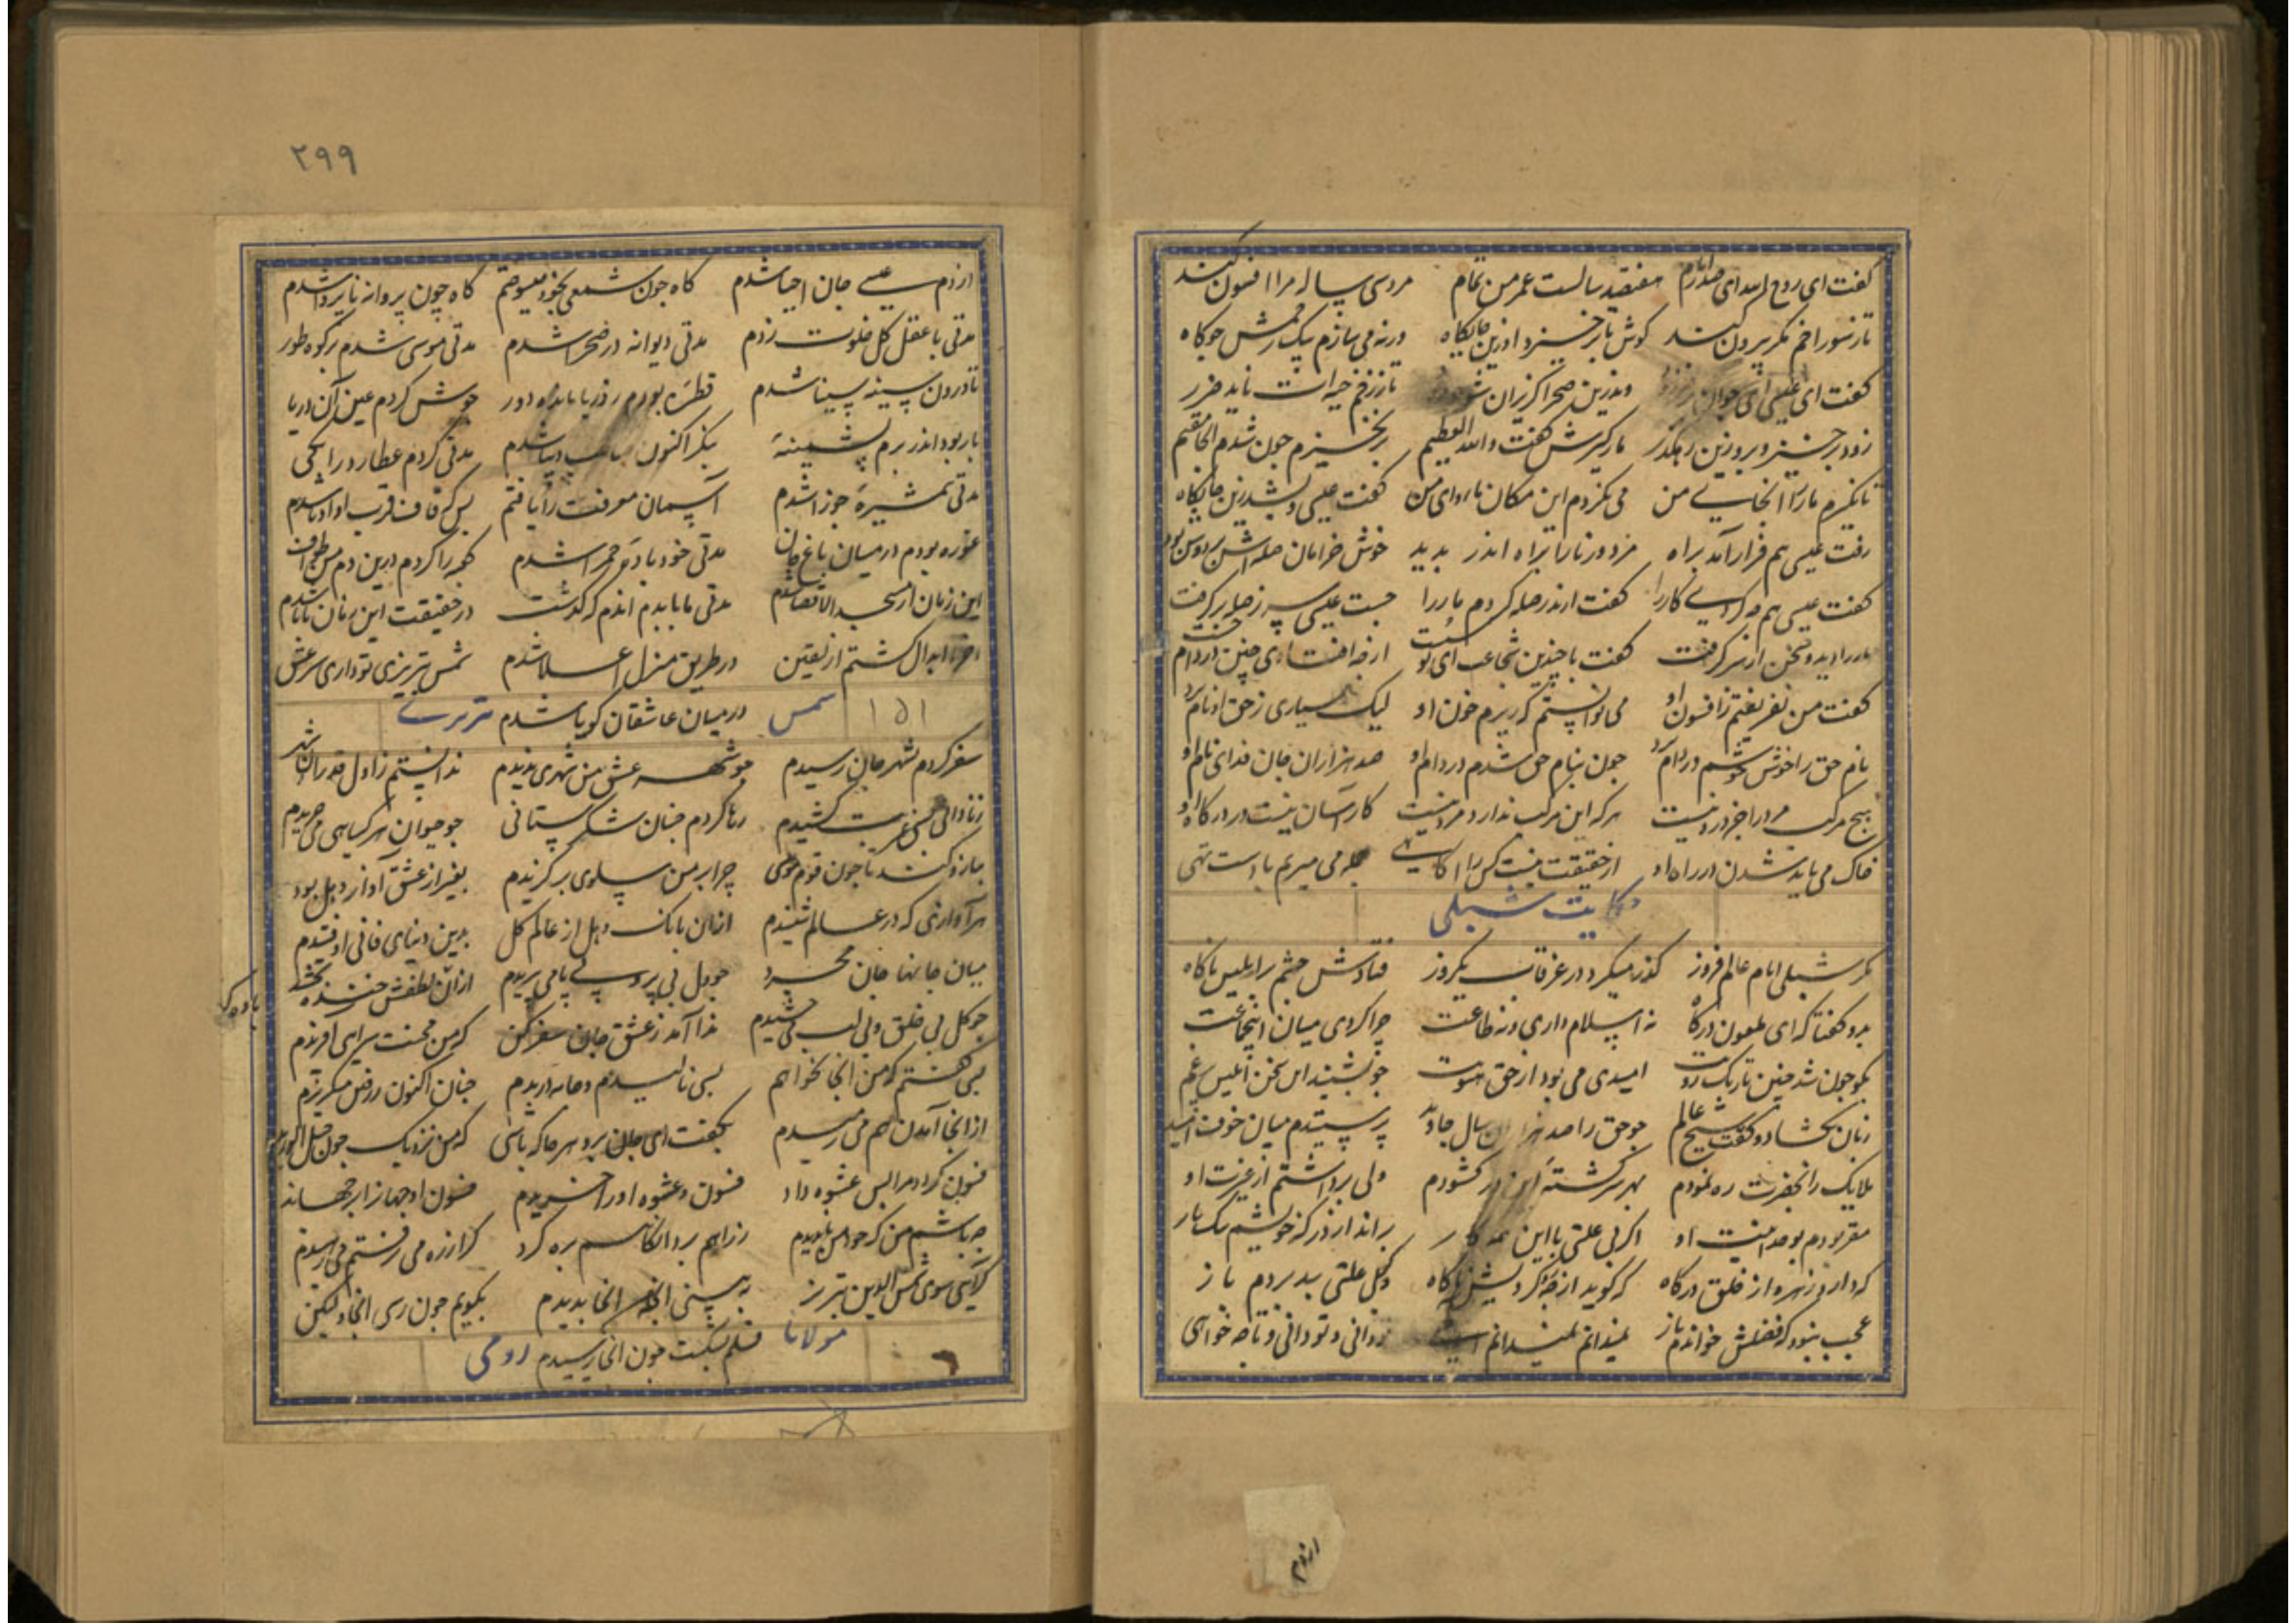 گفت ای روح الله ای صدرام هفتصد سالست عمر من تمام مردمی ساله مرا افسون کند
تا ز سوراخم مکر بیرون کند کوش باز خیزد ازین جایگاه ورنه می سازم یک زخمش جو کاه
گفت ای عیسی ای جوان وندرین صحرا کریزان شو تا ز زخم حیه ات ناید ضرر
زود برخیز و برو زین رهگذر مارکیرش گفت والله العظیم برنخیزم چون شدم اینجا مقیم
تا نگیرم مار را اینجای من می نکردم این مکان ماوای من گفت عیسی و بشد زین جایگاه
رفت عیسی هم فرار آمد براه مرد ورنا را براه اندر بدید خوش خرامان سله اش بر دوش بود
گفت عیسی هم کاررا گفت اندر سله کردم ماررا جست عیسی سر ز سله برگرفت
مار را دید و سخن از سر گرفت گفت با چندین شجاعت ای تو سست از چه افتادی چنین در دام
گفت من نفریفتم ز افسون او می توانستم که ریزم خون او لیک بسیاری ز حق او نام برد
نام حق را خوش بخوشم در دام برد چون بنام حق شدم در دام او صد هزاران جان فدای نام او
هیچ مرکب مرد را جز درد نیست هرکه این مرکب ندارد مرد نیست کار آسان نیست در درگاه او
خاک می باید شدن در راه او از حقیقت نیست کس را آگاهی جمله می میریم با دست تهی
حکایت شبلی
مگر شبلی امام عالم افروز گذر میکرد در عرفات یکروز فتادش چشم بر ابلیس ناگاه
بدو گفتا که ای ملعون درگاه نه اسلام داری و نه طاعت چرا گردی میان این جماعت
بگو چون شد چنین تاریک روت امیدی می بود از حق هنوت چو بشنید این سخن ابلیس پر غم
زبان بگشاد و گفت ای شیخ عالم چو حق را صد هزاران سال جاوید پرستیدم میان خوف امید
ملایک را بحضرت ره نمودم بهر سرگشته این در گشودم ولی پر داشتم از عزت او
مقر بودم بوحدانیت او اگر بی علتی با این همه کار براند از درگه خویشم یک بار
که دارد زهره از خلق درگاه که گوید از چه کردیش ناگاه وگر بی علتی بپذیردم باز
عجب نبود که فضلش خواندم باز نمیدانم نمیدانم الهی تو دانی و تو دانی و تا چه خواهی
ازدم
۲۹۹
از دم عیسی جان احیا شدم گاه چون شمعی بخود میسوختم گاه چون پروانه ناپروا شدم
مدتی با عقل کل خلوت زدم مدتی دیوانه در صحرا شدم مدتی موسی شدم بر کوه طور
تا درون سینه سینا شدم قطره بودم ز دریا مانده دور جوش کردم عین آن دریا
بار بود اندر برم پشمینه بنگر اکنون صاحب دیبا شدم مدتی کردم عطارد را یکی
مدتی همشیره جوزا شدم آسمان معرفت را یافتم پس که قاف قرب او ادنا شدم
غوره بودم در میان باغ جان مدتی خود باده حمرا شدم کعبه را کردم درین دم من طواف
این زمان از مسجد الاقصا شدم مدتی مابا بدم اندم که گذشت در حقیقت این زمان تاتا شدم
آخر ابدال گشتم از یقین در طریق منزل اعلا شدم شمس تبریزی تو داری سر عشق
۱۵۱ شمس در میان عاشقان گویا شدم تبریزی
سفر کردم بشهر جان رسیدم چو شهر عشق من شهری ندیدم ندانستم ز اول قدر آن شهر
ز نادانی بسی غربت کشیدم رها کردم چنان شکرستانی چو حیوان هر گیاهی می چریدم
پیاز و گندنا چون قوم موسی چرا بر من سلوی برگزیدم بغیر از عشق آواز دهل بود
هر آوازی که در عالم شنیدم از آن بانک دهل از عالم کل بدین دنیای فانی اوفتیدم
میان جانها جان مجرد چو دل بی پر و بی پا می پریدم از آن لطفش خنده بخشد
باده که
چو گل بی حلق و بی لب می چشیدم ندا آمد ز عشق جان سفر کن که من محنت سرای آفریدم
بسی گفتم که من آنجا نخواهم بسی نالیدم و جامه دریدم چنان اکنون ز رفتن میگریزم
از اینجا آمدن هم می رمیدم بگفت ای جان برو هر جا که باشی که من نزدیک چون حبل الوریدم
فسون کرد و مرا بس عشوه داد فسون و عشوه او را خریدم فسون او جهان را بر جهاند
چه باشم من که خود من ناپدیدم ز راهم برد آنگاهم بره کرد گر از ره می رفتم می رهیدم
گر آیی سوی شمس الدین تبریز ببینی آنچه آنجا بدیدم بگویم چون رسی آنجا ولیکن
مولانا قلم بشکست چون آنجا رسیدم رومی